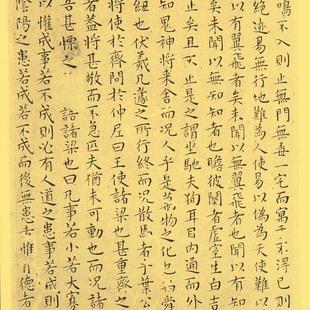 鳴不入則止無門無毒一宅而寓于不得已則
絕迹易無行地難為人使易以偽為天使難以
以有翼飛者矣未聞以無翼飛者也聞以有知
矣未聞以無知知者也瞻彼闋者虛室生白吉
止矣且夫不止是之謂坐馳夫徇耳目内通而外
知鬼神將來舍而況人乎是萬物之化也禹舜
紐也伏羲几蘧之所行終而況散焉者乎葉公
將使於齊問於仲尼曰王使諸梁也甚重齊之
者蓋將甚敬而不急匹夫猶未可動也而況諸
吾甚慄之 語諸梁也曰凡事若小若大寡
以懽成事若不成則必有人道之患事若成則
陰陽之患若成若不成而後無患者惟有德者